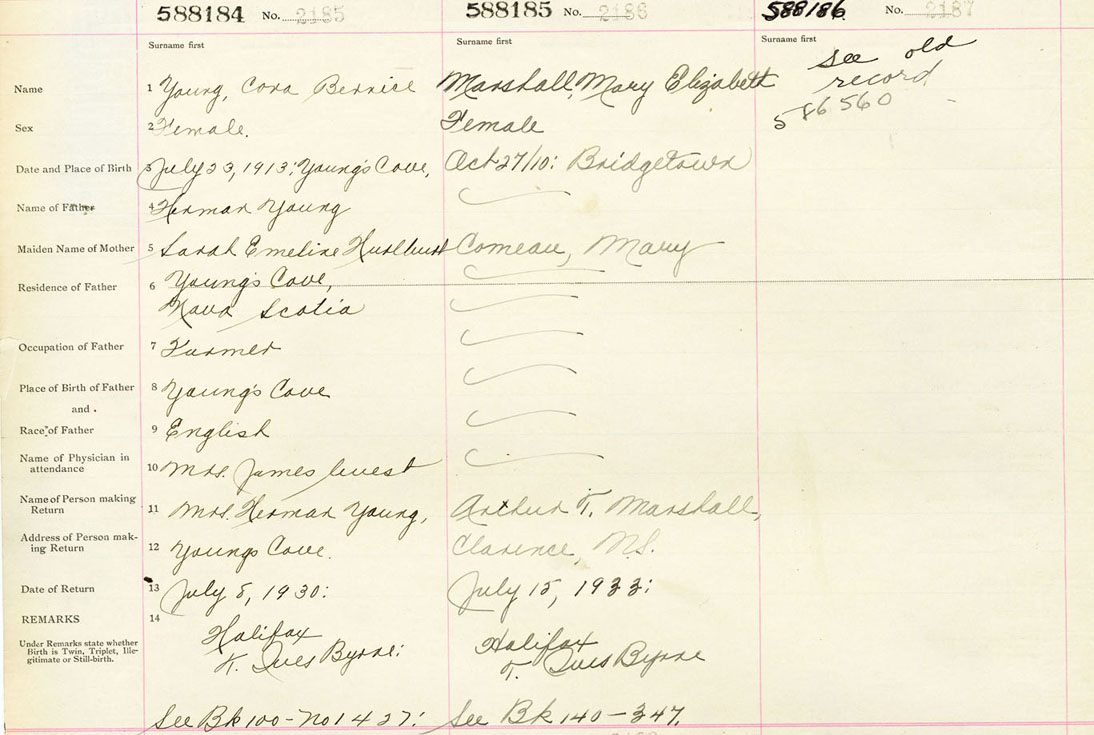 588184 No. 2185 588185 No. 2186 588186 No. 2187
Surname first Surname first Surname first
see old
record
586560
Name 1 Young, Cora Bernice Marshall, Mary Elizabeth
Sex 2 Female. Female
Date and Place of Birth 3 July 23, 1913: Young's Cove, Oct 27/10: Bridgetown
Name of Father 4 Herman Young
Maiden Name of Mother 5 Sarah Emeline Hurlburt Comeau, Mary
Residence of Father 6 Young's Cove,
Nova Scotia
Occupation of Father 7 Farmer
Place of Birth of Father 8 Young's Cove
and
Race of Father 9 English
Name of Physician in
attendance 10 Mrs. James Guest
Name of Person making
Return 11 Mrs. Herman Young, Arthur T. Marshall,
Address of Person mak-
ing Return 12 Youngs Cove. Clarence, N.S.
Date of Return 13 July 5, 1930: July 15, 1933:
REMARKS 14
Under Remarks state whether
Birth is Twin, Triplet, Ille-
gitimate or Still-birth.
Halifax Halifax
T. Ives Byrne: T. Ives Byrne
See Bk 100-No 1427: See Bk 140-347.